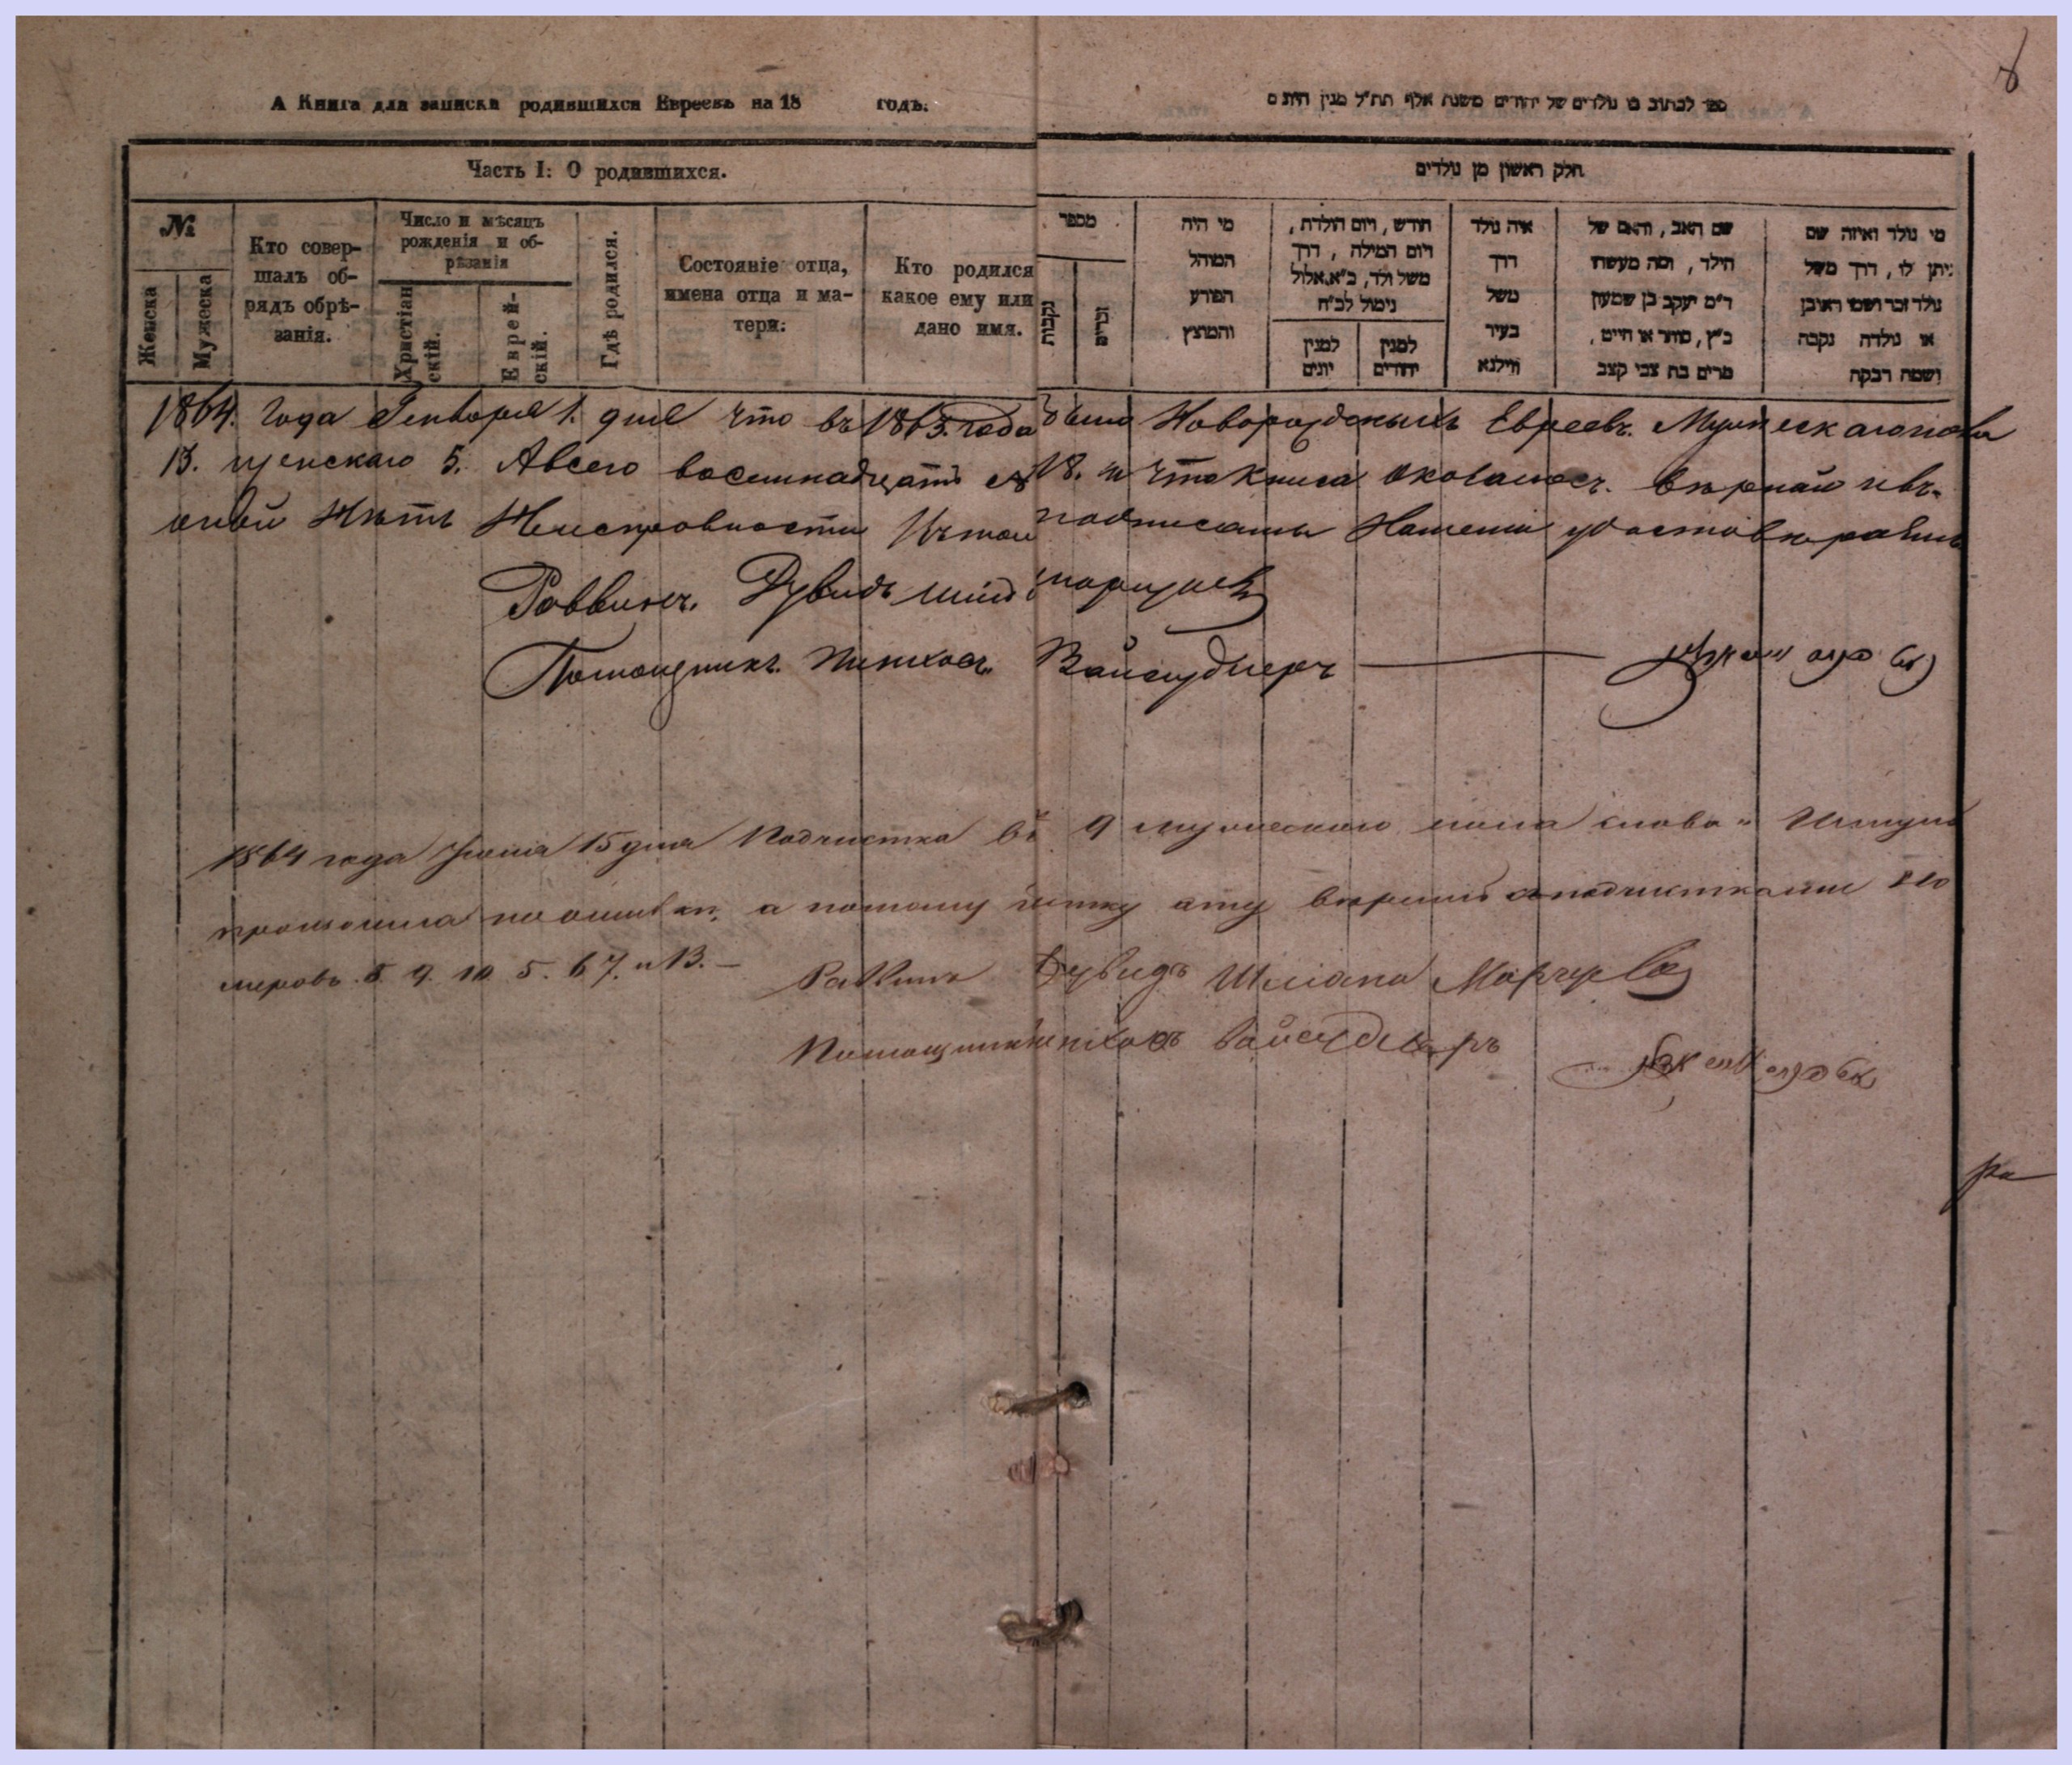 А Книга для записки родившихся Евреевъ на 18 годъ.
ספר לכתוב בו נולדים של יהודים משנת אלף תת״ל מנין
Часть I: О родившихся.
חלק ראשון מן נולדים
№
Женска
Мужеска
Кто совер-
шалъ об-
рядъ обрѣ-
занія.
Число и мѣсяцъ
рожденія и об-
рѣзанія
Христіан
скій.
Еврей-
скій.
Гдѣ родился.
Состояніе отца,
имена отца и ма-
тери:
Кто родился
какое ему или
дано имя.
מספר
נקבות
זכרים
מי היה
המוהל
הפורע
והמוצץ
חודש, ויום הולדת,
ויום המילה, דרך
משל ולד, כ״א אלול
נימול לכ״ח
למנין
יונים
למנין
יהודים
איה נולד
דרך
משל
בעיר
ווילנא
שם האב, והאם של
הילד, ומה מעשהו
ר״מ יעקב בן שמעון
כ״ץ, סוחר או חייט,
מרים בת צבי קצב
מי נולד ואיזה שם
ניתן לו, דרך משל
נולד זכר ושמו ראובן
או נולדה נקבה
ושמה רבקה
1864. года Генворя 1. дня что въ 1863. года было Новорожденыхъ Евреевъ. Мужескаго пола
13. женскаго 5. Авсего восемнадцать 18. и что книга оказалось. вѣрнай
оной Нѣтъ Неисправности подписомъ Нашемъ удостовѣраемъ
Раввинъ. Дувидъ
Помощникъ. Пинхосъ. Вайсуднеръ
1864 года Іюня 15 дня Подчистка въ 9 мужескаго пола слово
произошла по ошибки, а потому читку эту вѣримъ подчистками но
меровъ. 8 9. 10 5. 6 7. и 13. — Раввинъ Дувидъ Шліома
Помощникъ Пинхосъ Вайсуднеръ